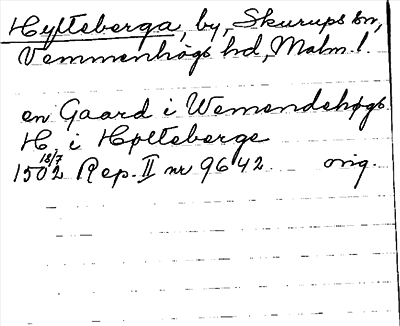 Hylteberga, by, Skurups sn,
Vemmenhögs hd, Malm. l.
en Gaard i Wemendehøgs
H. i Hølteberge
1502 18/7 Rep. II nr 9642 orig.